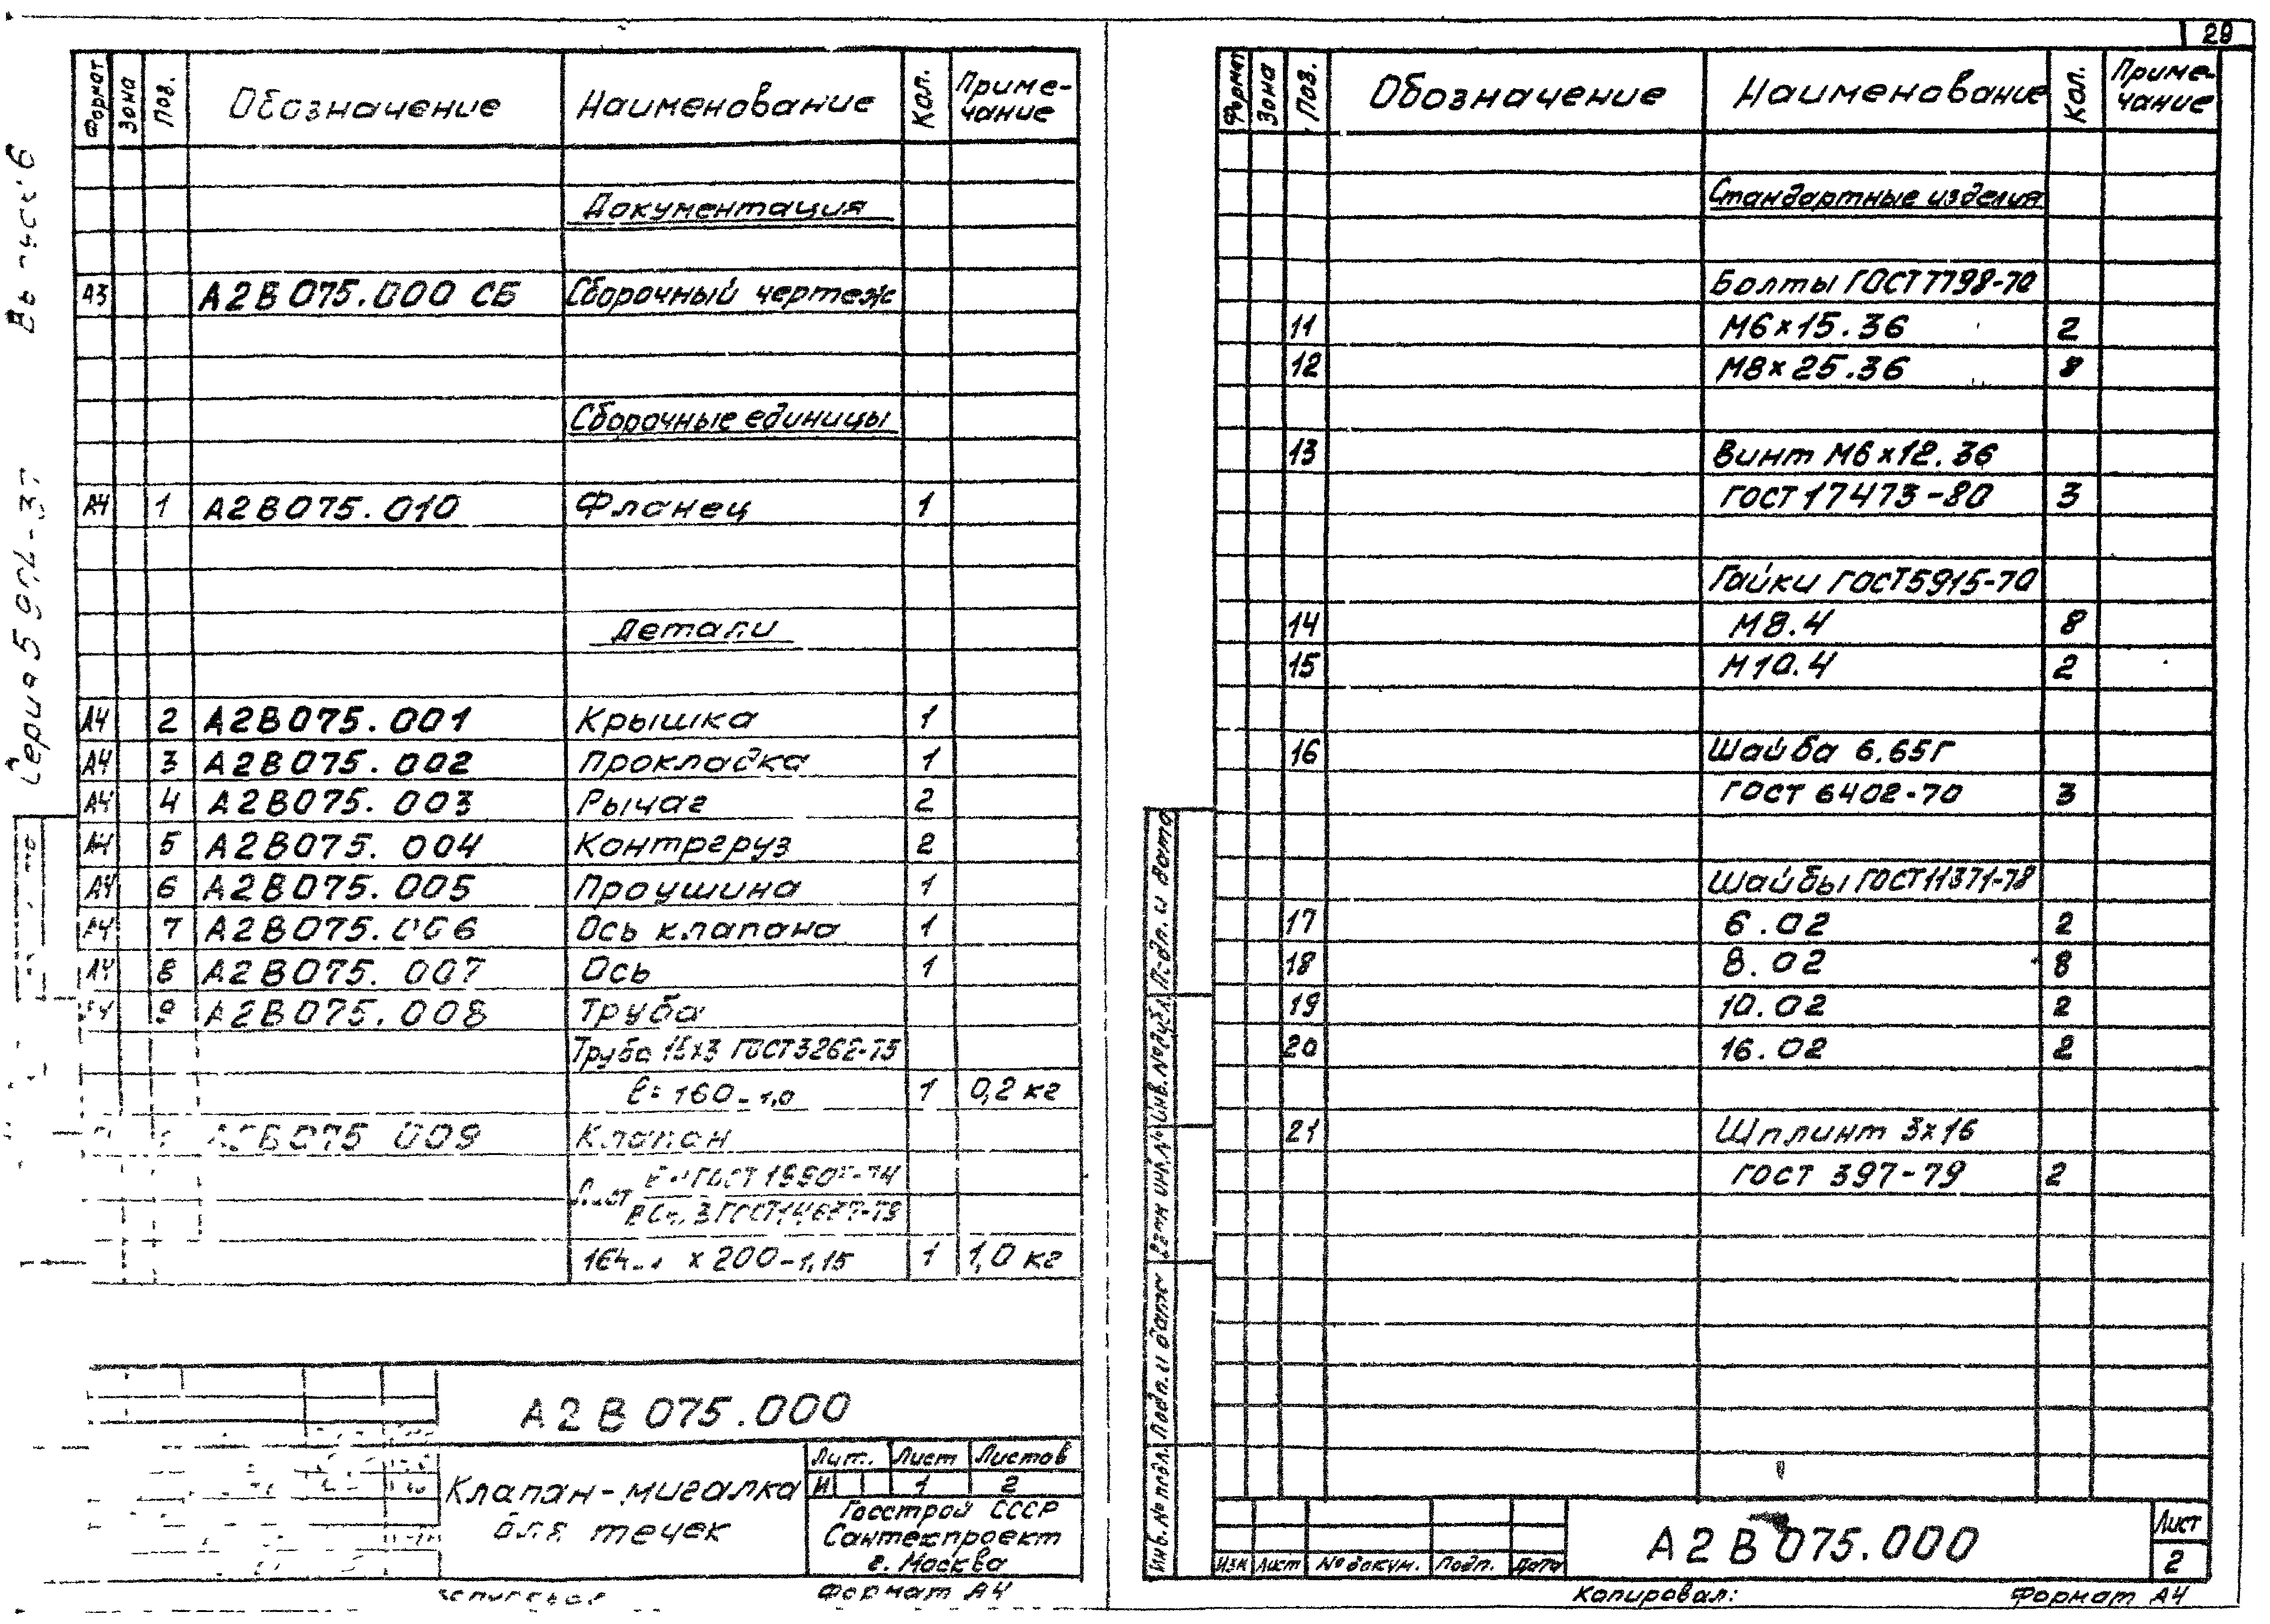 29
Формат Зона Поз. Обозначение Наименование Кол. Приме-чание
Документация
А3 А2В075.000 СБ Сборочный чертеж
Сборочные единицы
А4 1 А2В075.010 Фланец 1
Детали
А4 2 А2В075.001 Крышка 1
А4 3 А2В075.002 Прокладка 1
А4 4 А2В075.003 Рычаг 2
А4 5 А2В075.004 Контргруз 2
А4 6 А2В075.005 Проушина 1
А4 7 А2В075.006 Ось клапана 1
А4 8 А2В075.007 Ось 1
А4 9 А2В075.008 Труба
Труба 15х3 ГОСТ3262-75
ℓ=160-1,0 1 0,2 кг
А2В075 009 Клапан
Лист
164 х 200-1,15 1 1,0 кг
А2В 075.000
Клапан-мигалка
для течек
Лит. Лист Листов
И 1 2
Госстрой СССР
Сантехпроект
г. Москва
Формат А4
Формат Зона Поз. Обозначение Наименование Кол. Приме-чание
Стандартные изделия
Болты ГОСТ7798-70
11 М6×15.36 2
12 М8×25.36 8
13 Винт М6×12.36
ГОСТ 17473-80 3
Гайки ГОСТ5915-70
14 М8.4 8
15 М10.4 2
16 Шайба 6.65Г
ГОСТ 6402-70 3
Шайбы ГОСТ11371-78
17 6.02 2
18 8.02 8
19 10.02 2
20 16.02 2
21 Шплинт 3х16
ГОСТ 397-79 2
Инв.№ подл. Подп. и дата Взам инв.№ Инв.№дубл. Подп. и дата
Изм Лист № докум. Подп. Дата
А2В 075.000
Лист
2
Копировал: Формат А4